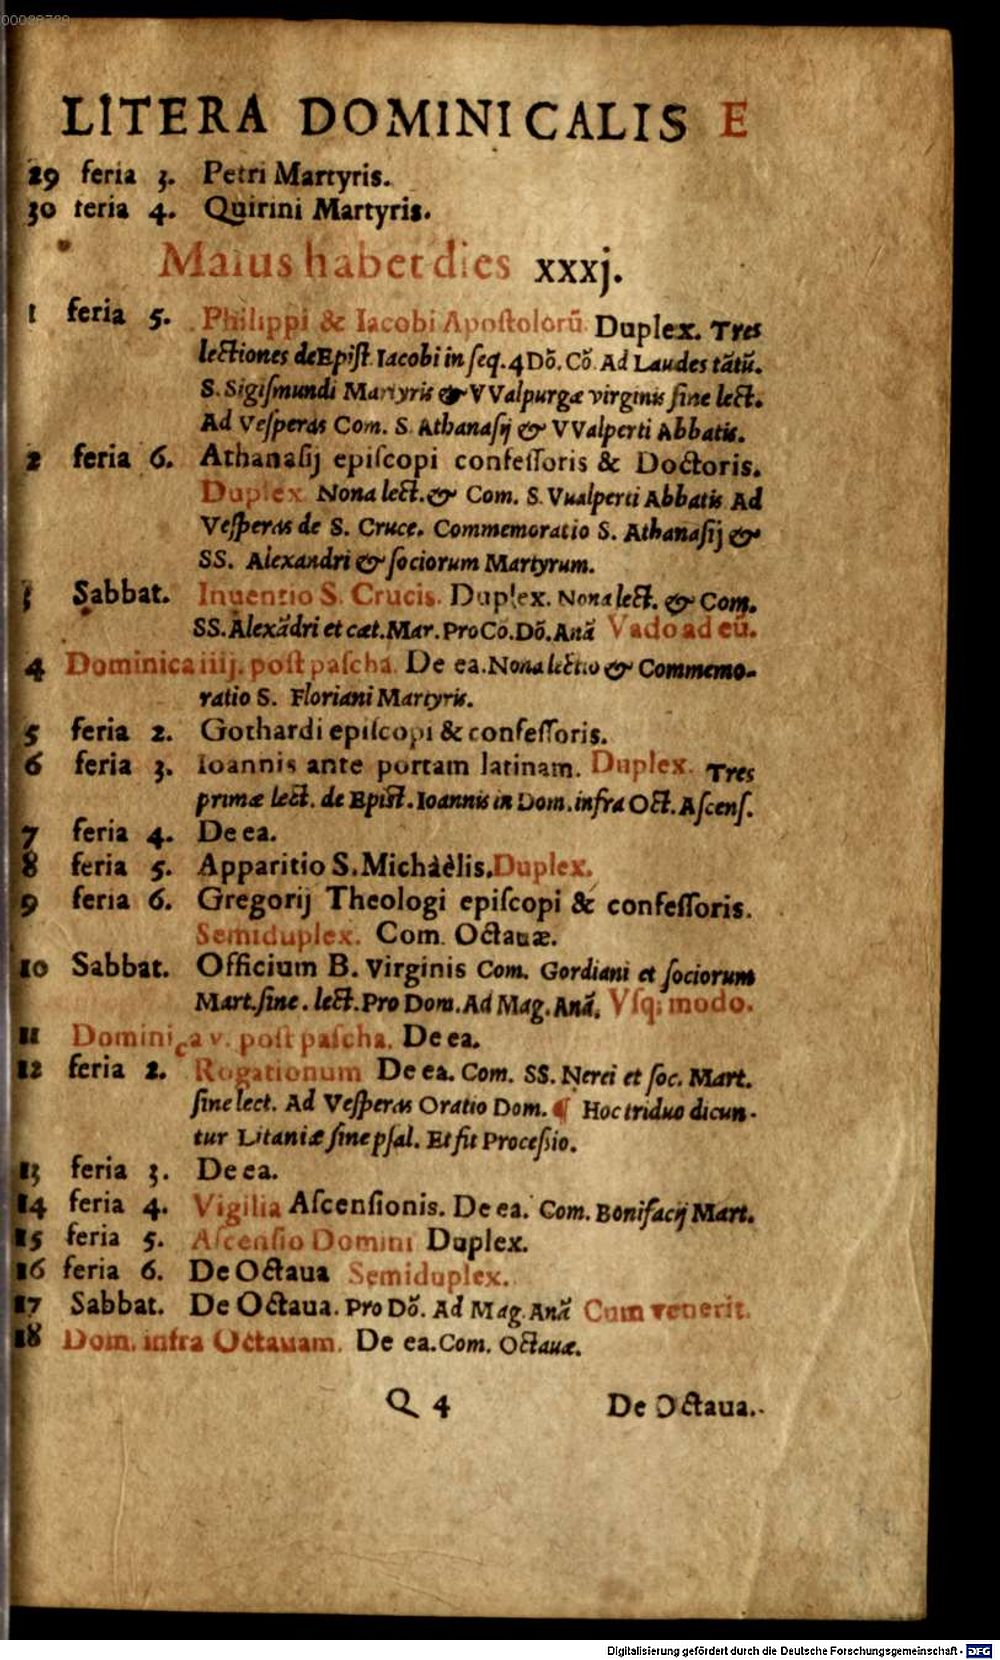 00028729
LITERA DOMINICALIS E
29 feria 3. Petri Martyris.
30 feria 4. Quirini Martyris.
Maius habet dies xxxj.
1 feria 5. Philippi & Iacobi Apoſtolorũ. Duplex. Tres
lectiones de Epiſt. Iacobi in ſeq. 4 Dõ. Cõ. Ad Laudes tãtũ.
S. Sigiſmundi Martyris & VValpurgæ virginis ſine lect.
Ad Veſperas Com. S. Athanaſij & VValperti Abbatis.
2 feria 6. Athanaſij epiſcopi confeſſoris & Doctoris.
Duplex. Nona lect. & Com. S. Vualperti Abbatis Ad
Veſperas de S. Cruce. Commemoratio S. Athanaſij &
SS. Alexandri & ſociorum Martyrum.
3 Sabbat. Inuentio S. Crucis. Duplex. Nona lect. & Com.
SS. Alexãdri et cæt. Mar. Pro Cõ. Dõ. Anã Vado ad eũ.
4 Dominica iiij. poſt paſcha. De ea. Nona lectio & Commemo-
ratio S. Floriani Martyris.
5 feria 2. Gothardi epiſcopi & confeſſoris.
6 feria 3. Ioannis ante portam latinam. Duplex. Tres
primæ lect. de Epiſt. Ioannis in Dom. infra Oct. Aſcenſ.
7 feria 4. De ea.
8 feria 5. Apparitio S. Michaëlis. Duplex.
9 feria 6. Gregorij Theologi epiſcopi & confeſſoris.
Semiduplex. Com. Octauæ.
10 Sabbat. Officium B. Virginis Com. Gordiani et ſociorum
Mart. ſine. lect. Pro Dom. Ad Mag. Anã. Vſq; modo.
11 Dominica v. poſt paſcha. De ea.
12 feria 2. Rogationum De ea. Com. SS. Nerei et ſoc. Mart.
ſine lect. Ad Veſperas Oratio Dom. ¶ Hoc triduo dicun-
tur Litaniæ ſine pſal. Et fit Proceſſio.
13 feria 3. De ea.
14 feria 4. Vigilia Aſcenſionis. De ea. Com. Bonifacij Mart.
15 feria 5. Aſcenſio Domini Duplex.
16 feria 6. De Octaua Semiduplex.
17 Sabbat. De Octaua. Pro Dõ. Ad Mag. Anã Cum venerit.
18 Dom. infra Octauam. De ea. Com. Octauæ.
Q 4 De Octaua.
Digitalisierung gefördert durch die Deutsche Forschungsgemeinschaft - DFG